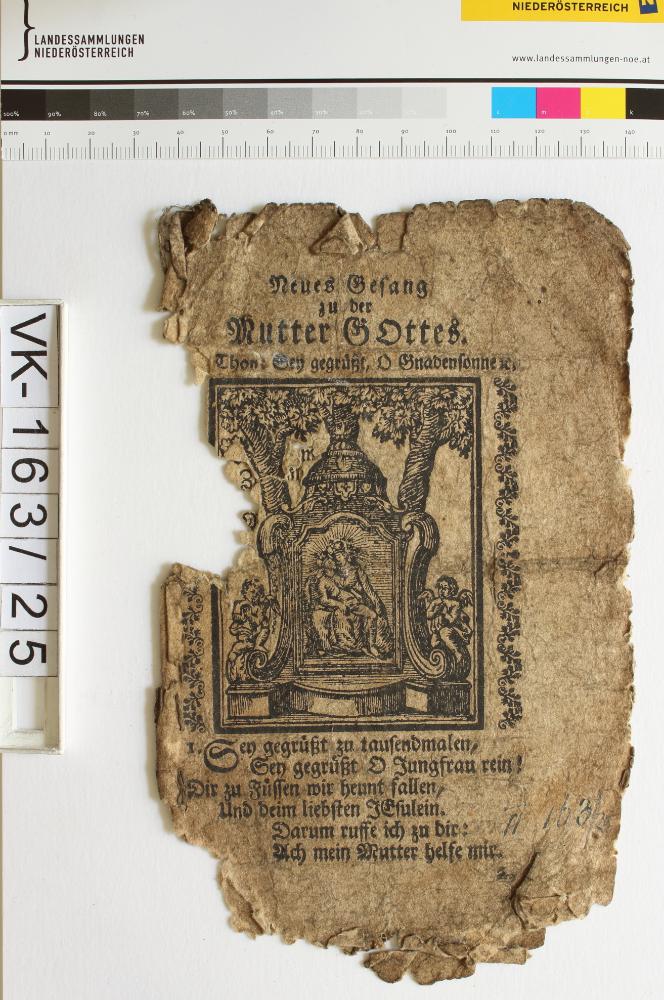 NIEDERÖSTERREICH
LANDESSAMMLUNGEN
NIEDERÖSTERREICH
www.landessammlungen-noe.at
100% 90% 80% 70% 60% 50% 40% 30% 20% 10% c m y k
0 mm 10 20 30 40 50 60 70 80 90 100 110 120 130 140
VK-163/25
Neues Gesang
zu der
Mutter GOttes.
Thon: Sey gegrüßt, O Gnadensonne ꝛc.
1. Sey gegrüßt zu tausendmalen,
Sey gegrüßt O Jungfrau rein!
Dir zu Füssen wir heunt fallen,
Und deim liebsten JEsulein.
Darum ruffe ich zu dir:
Ach mein Mutter helfe mir.
2.